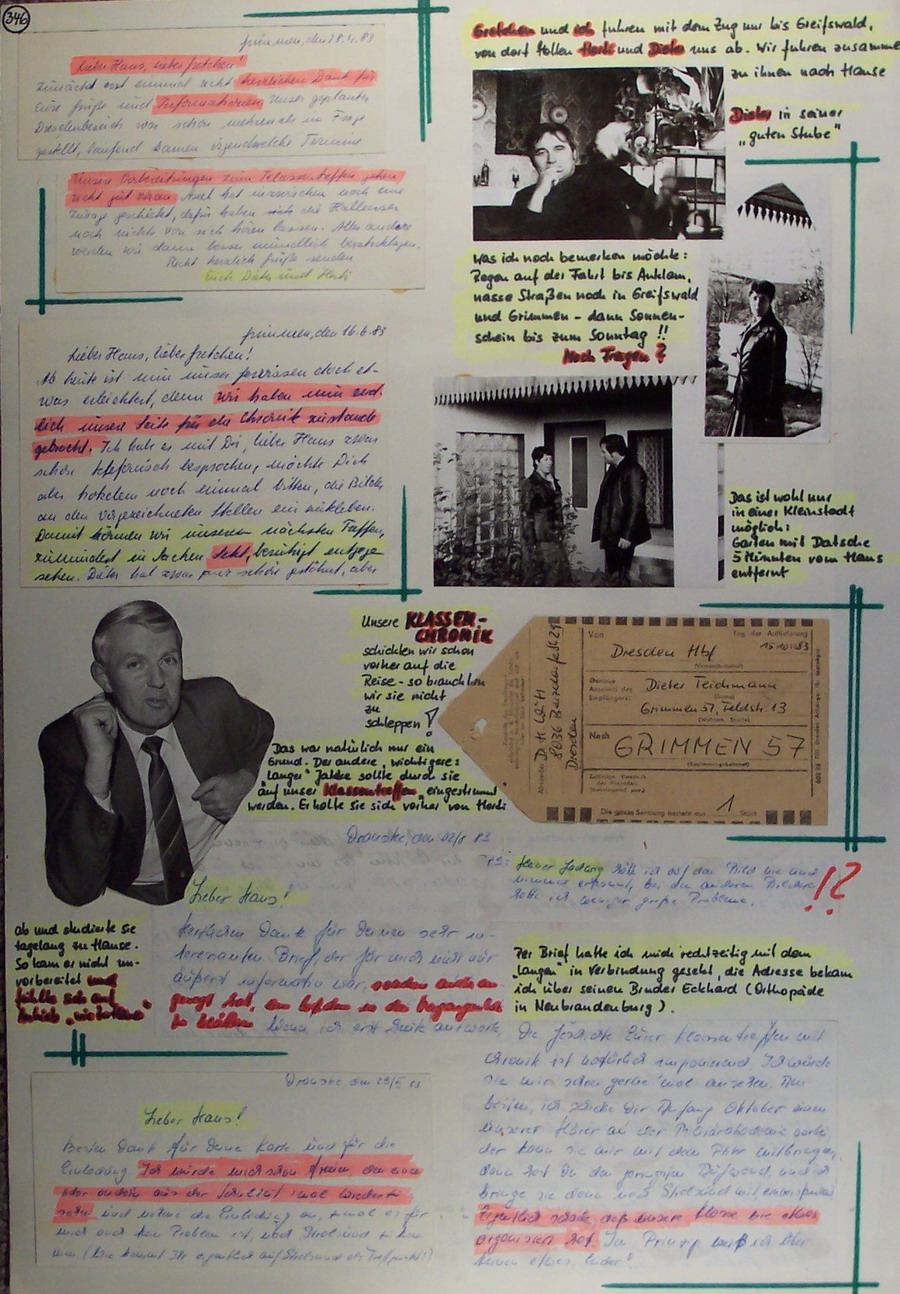 346
Grimmen, den 28.4.83
Lieber Hans, lieber Gretchen!
Zunächst erst einmal recht herzlichen Dank für
Eure Grüße und Informationen. Unser geplanter
Dresdenbesuch war schon mehrmals in Frage
gestellt, laufend kamen irgendwelche Termine
Unsere Vorbereitungen zum Klassentreffen gehen
recht gut voran. Axel hat inzwischen noch eine
Zusage geschickt, dafür haben sich die Hallenser
noch nichts von sich hören lassen. Alles andere
werden wir dann besser mündlich beratschlagen.
Recht herzlich grüße senden
Euch Dieter und Herti
Grimmen, den 16.6.83
Lieber Hans, liebes Gretchen!
Ab heute ist nun unser Gewissen doch et-
was erleichtert, denn wir haben nun end-
lich unsere Seite für die Chronik zustande
gebracht. Ich habe es mit Dir, lieber Hans zwar
schon telefonisch besprochen, möchte Dich
aber trotzdem noch einmal bitten, die Bilder
an den vorgezeichneten Stellen einzukleben.
Damit können wir unserem nächsten Treffen,
zumindest in Sachen Sekt, beruhigt entgegen
sehen. Dieter hat zwar schon gestöhnt, aber
Gretchen und ich fuhren mit dem Zug nur bis Greifswald,
von dort holten Herti und Dieter uns ab. Wir fuhren zusammen
zu ihnen nach Hause
Dieter in seiner
„guten Stube"
Was ich noch bemerken möchte:
Regen auf der Fahrt bis Anklam,
nasse Straßen noch in Greifswald
und Grimmen - dann Sonnen-
schein bis zum Sonntag !!
Noch Fragen?
Das ist wohl nur
in einer Kleinstadt
möglich:
Garten mit Datsche
5 Minuten vom Haus
entfernt
Unsere KLASSEN-
CHRONIK
schickten wir schon
vorher auf die
Reise - so brauchten
wir sie nicht
zu
schleppen!
Das war natürlich nur ein
Grund. Der andere, wichtigere:
„langer" Jahke sollte durch sie
auf unser Klassentreffen eingestimmt
werden. Er holte sie sich vorher von Herti
ab und studierte sie
tagelang zu Hause.
So kam er nicht un-
vorbereitet und
fühlte sich auf
Anhieb „wie zu Hause"
Von
Tag der Auflieferung
Dresden Hbf
15.10.83
Dieter Teichmann
Grimmen 57, Feldstr. 13
Nach
GRIMMEN 57
Die ganze Sendung besteht aus 1 Stück
8036
Dresden
Dranske, am 02/8 83
Lieber Hans!
Herzlichen Dank für Deinen sehr in-
teressanten Brief, der für mich nicht nur
äußerst informativ war, sondern auch an-
geregt hat, ein bißchen in der Vergangenheit
zu wühlen. Wenn ich erst heute antworte
PS:
hätte ich auf dem Bild nie und
nimmer erkannt, bei den anderen Bildern
hatte ich weniger große Probleme.
!?
Per Brief hatte ich mich rechtzeitig mit dem
„langen" in Verbindung gesetzt, die Adresse bekam
ich über seinen Bruder Eckhard (Orthopäde
in Neubrandenburg).
Die Geschichte Eurer Klassentreffen mit
Chronik ist natürlich imponierend. Ich würde
sie mir schon gerne mal ansehen.
ich schicke Dir Anfang Oktober einen
unserer Hörer an der Militärakademie vorbei,
der kann sie mir mit dem PKW mitbringen,
dann hast Du den geringsten Aufwand, und ich
bringe sie dann nach Stralsund mit, einverstanden?
Eigentlich schade, daß unsere Klasse nie etwas
organisiert hat. Im Prinzip weiß ich über
keinen etwas, leider!
Lieber Hans!
Besten Dank für Deine Karte und für die
Einladung. Ich würde mich schon freuen, den einen
oder anderen aus der Schulzeit mal wiederzu-
sehen und nehme die Einladung an, zumal es für
mich auch kein Problem ist, nach Stralsund zu kom-
men. (Wie kommt Ihr eigentlich auf Stralsund als Treffpunkt?)